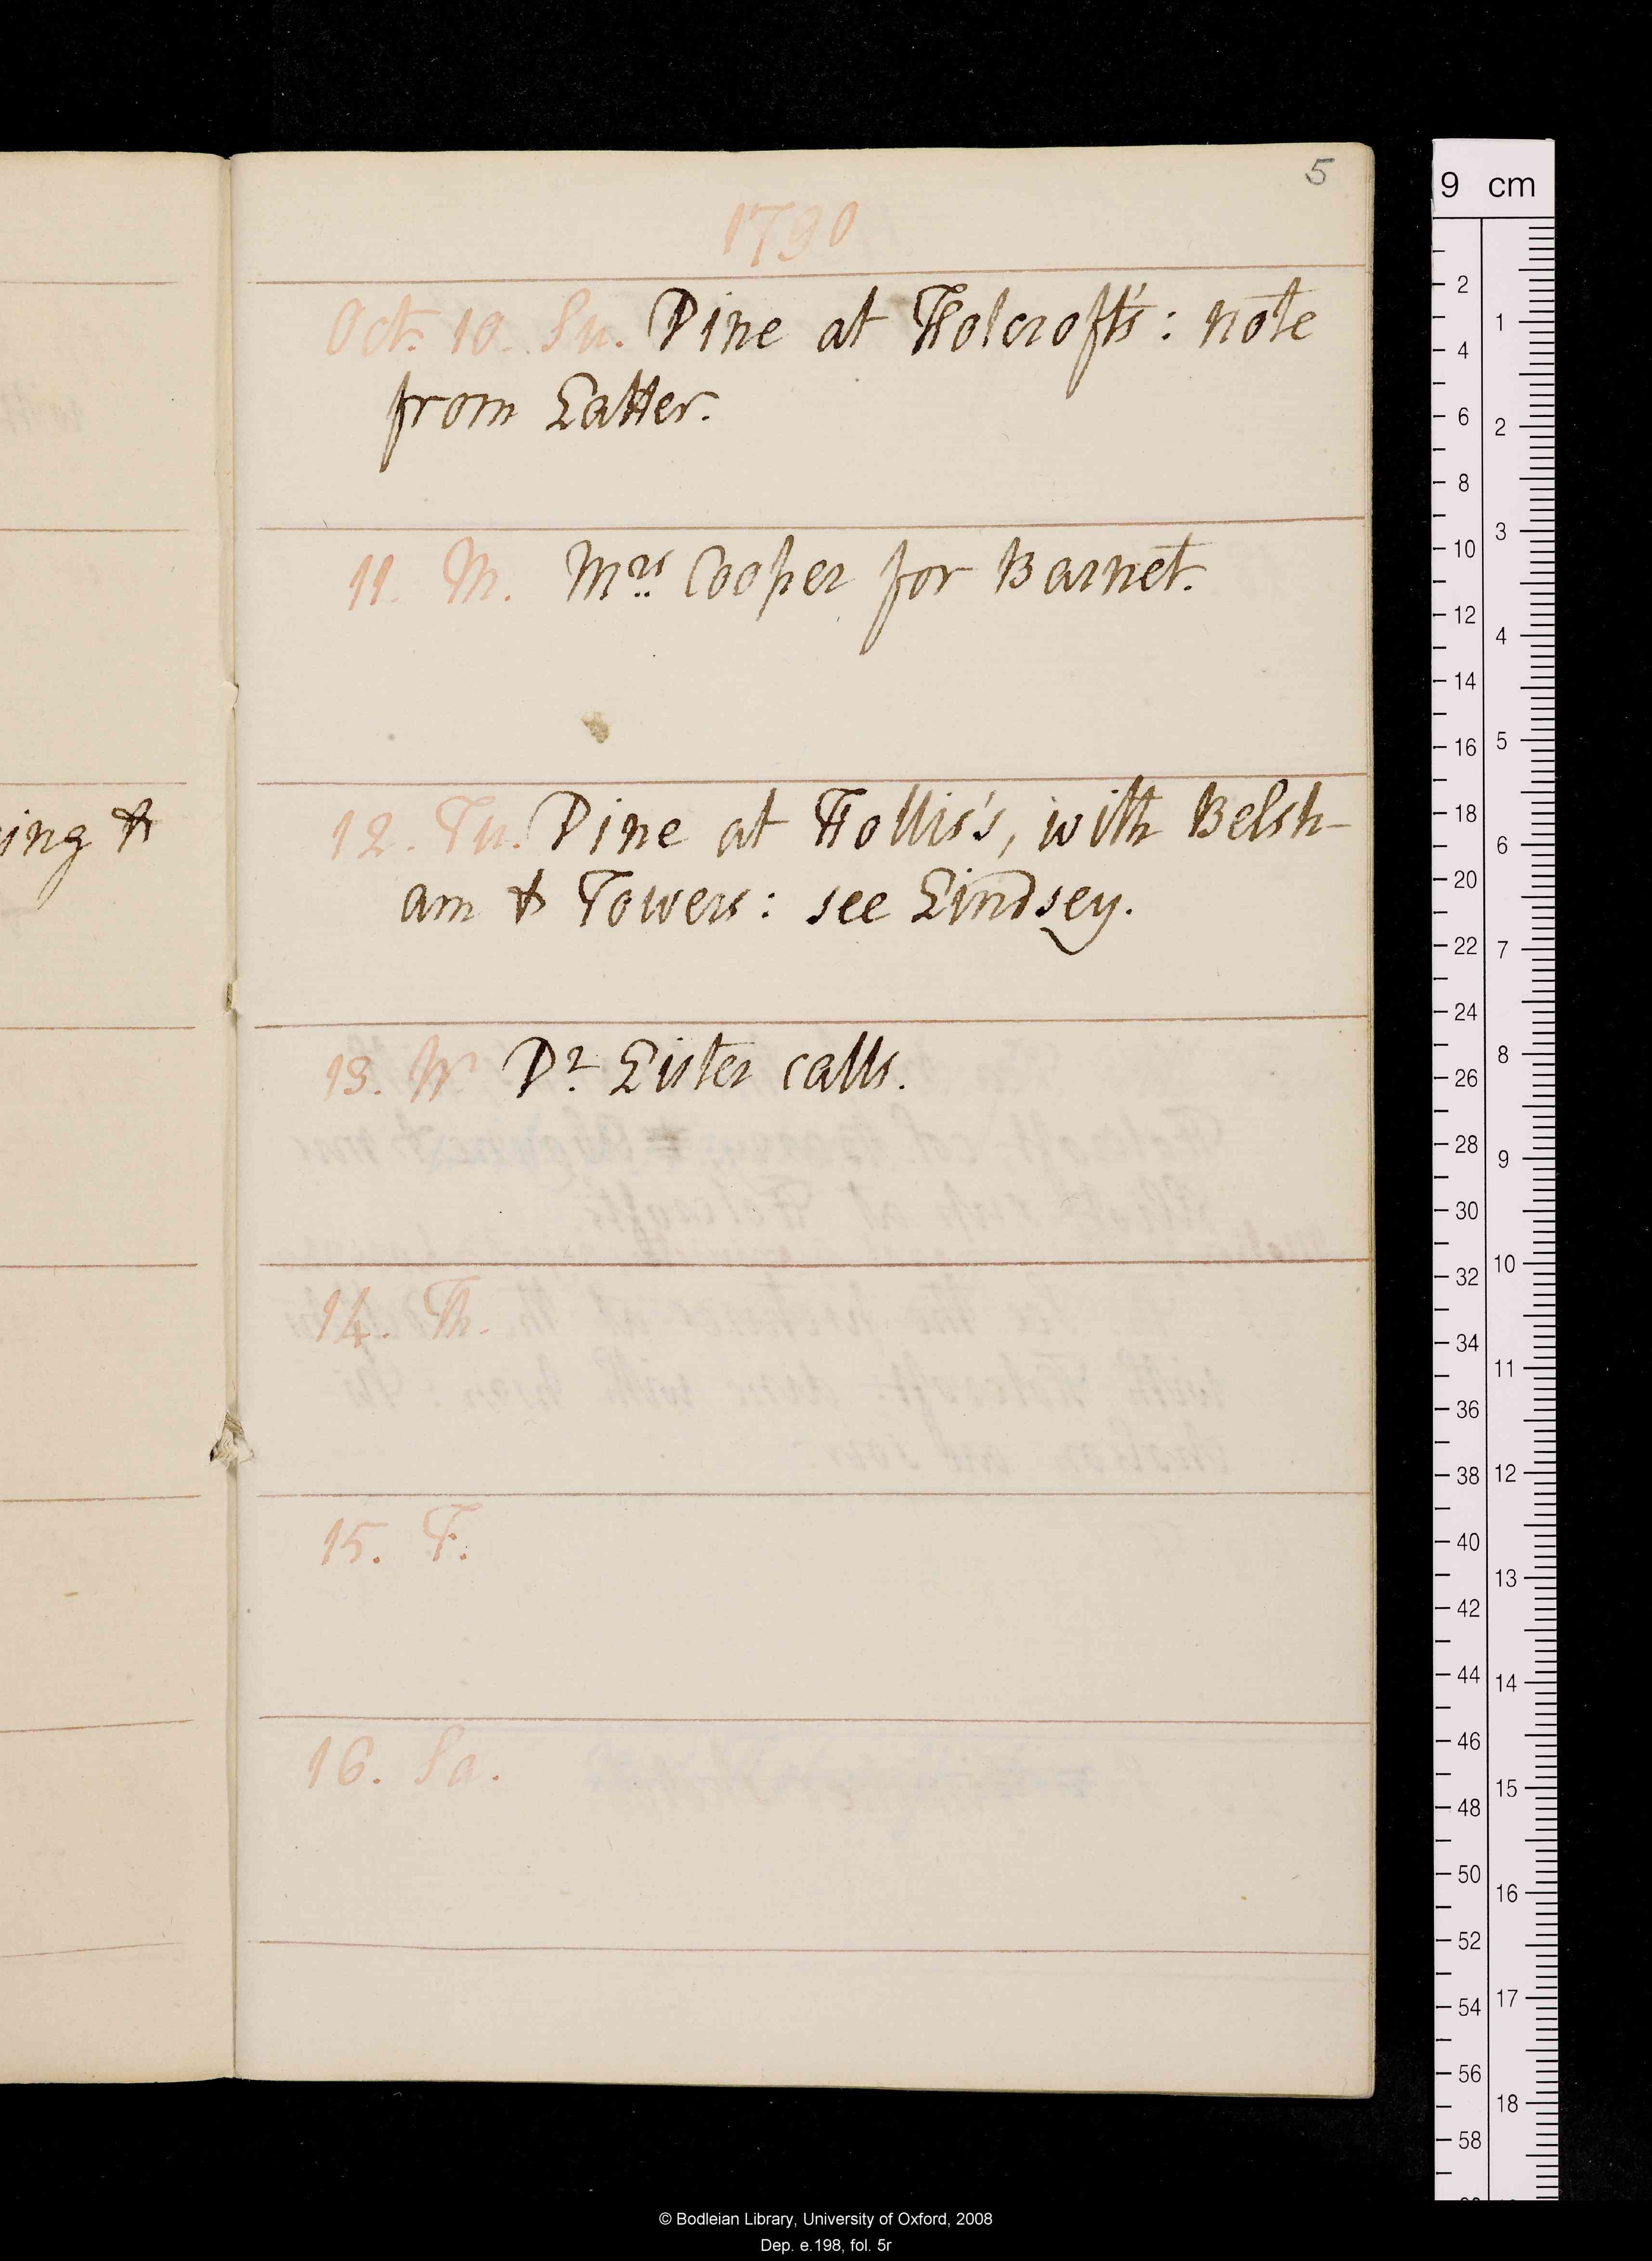 5
1790
Oct. 10. Su. Dine at Holcroft's: note
from Latter.
11. M. Mrs Cooper for Barnet.
ing &
12. Tu. Dine at Hollis's, with Belsh-
am & Towers: see Lindsey.
13. W. Dr. Lister calls.
14. Th.
15. F.
16. Sa.
9 cm
2
4
6
8
10
12
14
16
18
20
22
24
26
28
30
32
34
36
38
40
42
44
46
48
50
52
54
56
58
1
2
3
4
5
6
7
8
9
10
11
12
13
14
15
16
17
18
© Bodleian Library, University of Oxford, 2008
Dep. e.198, fol. 5r